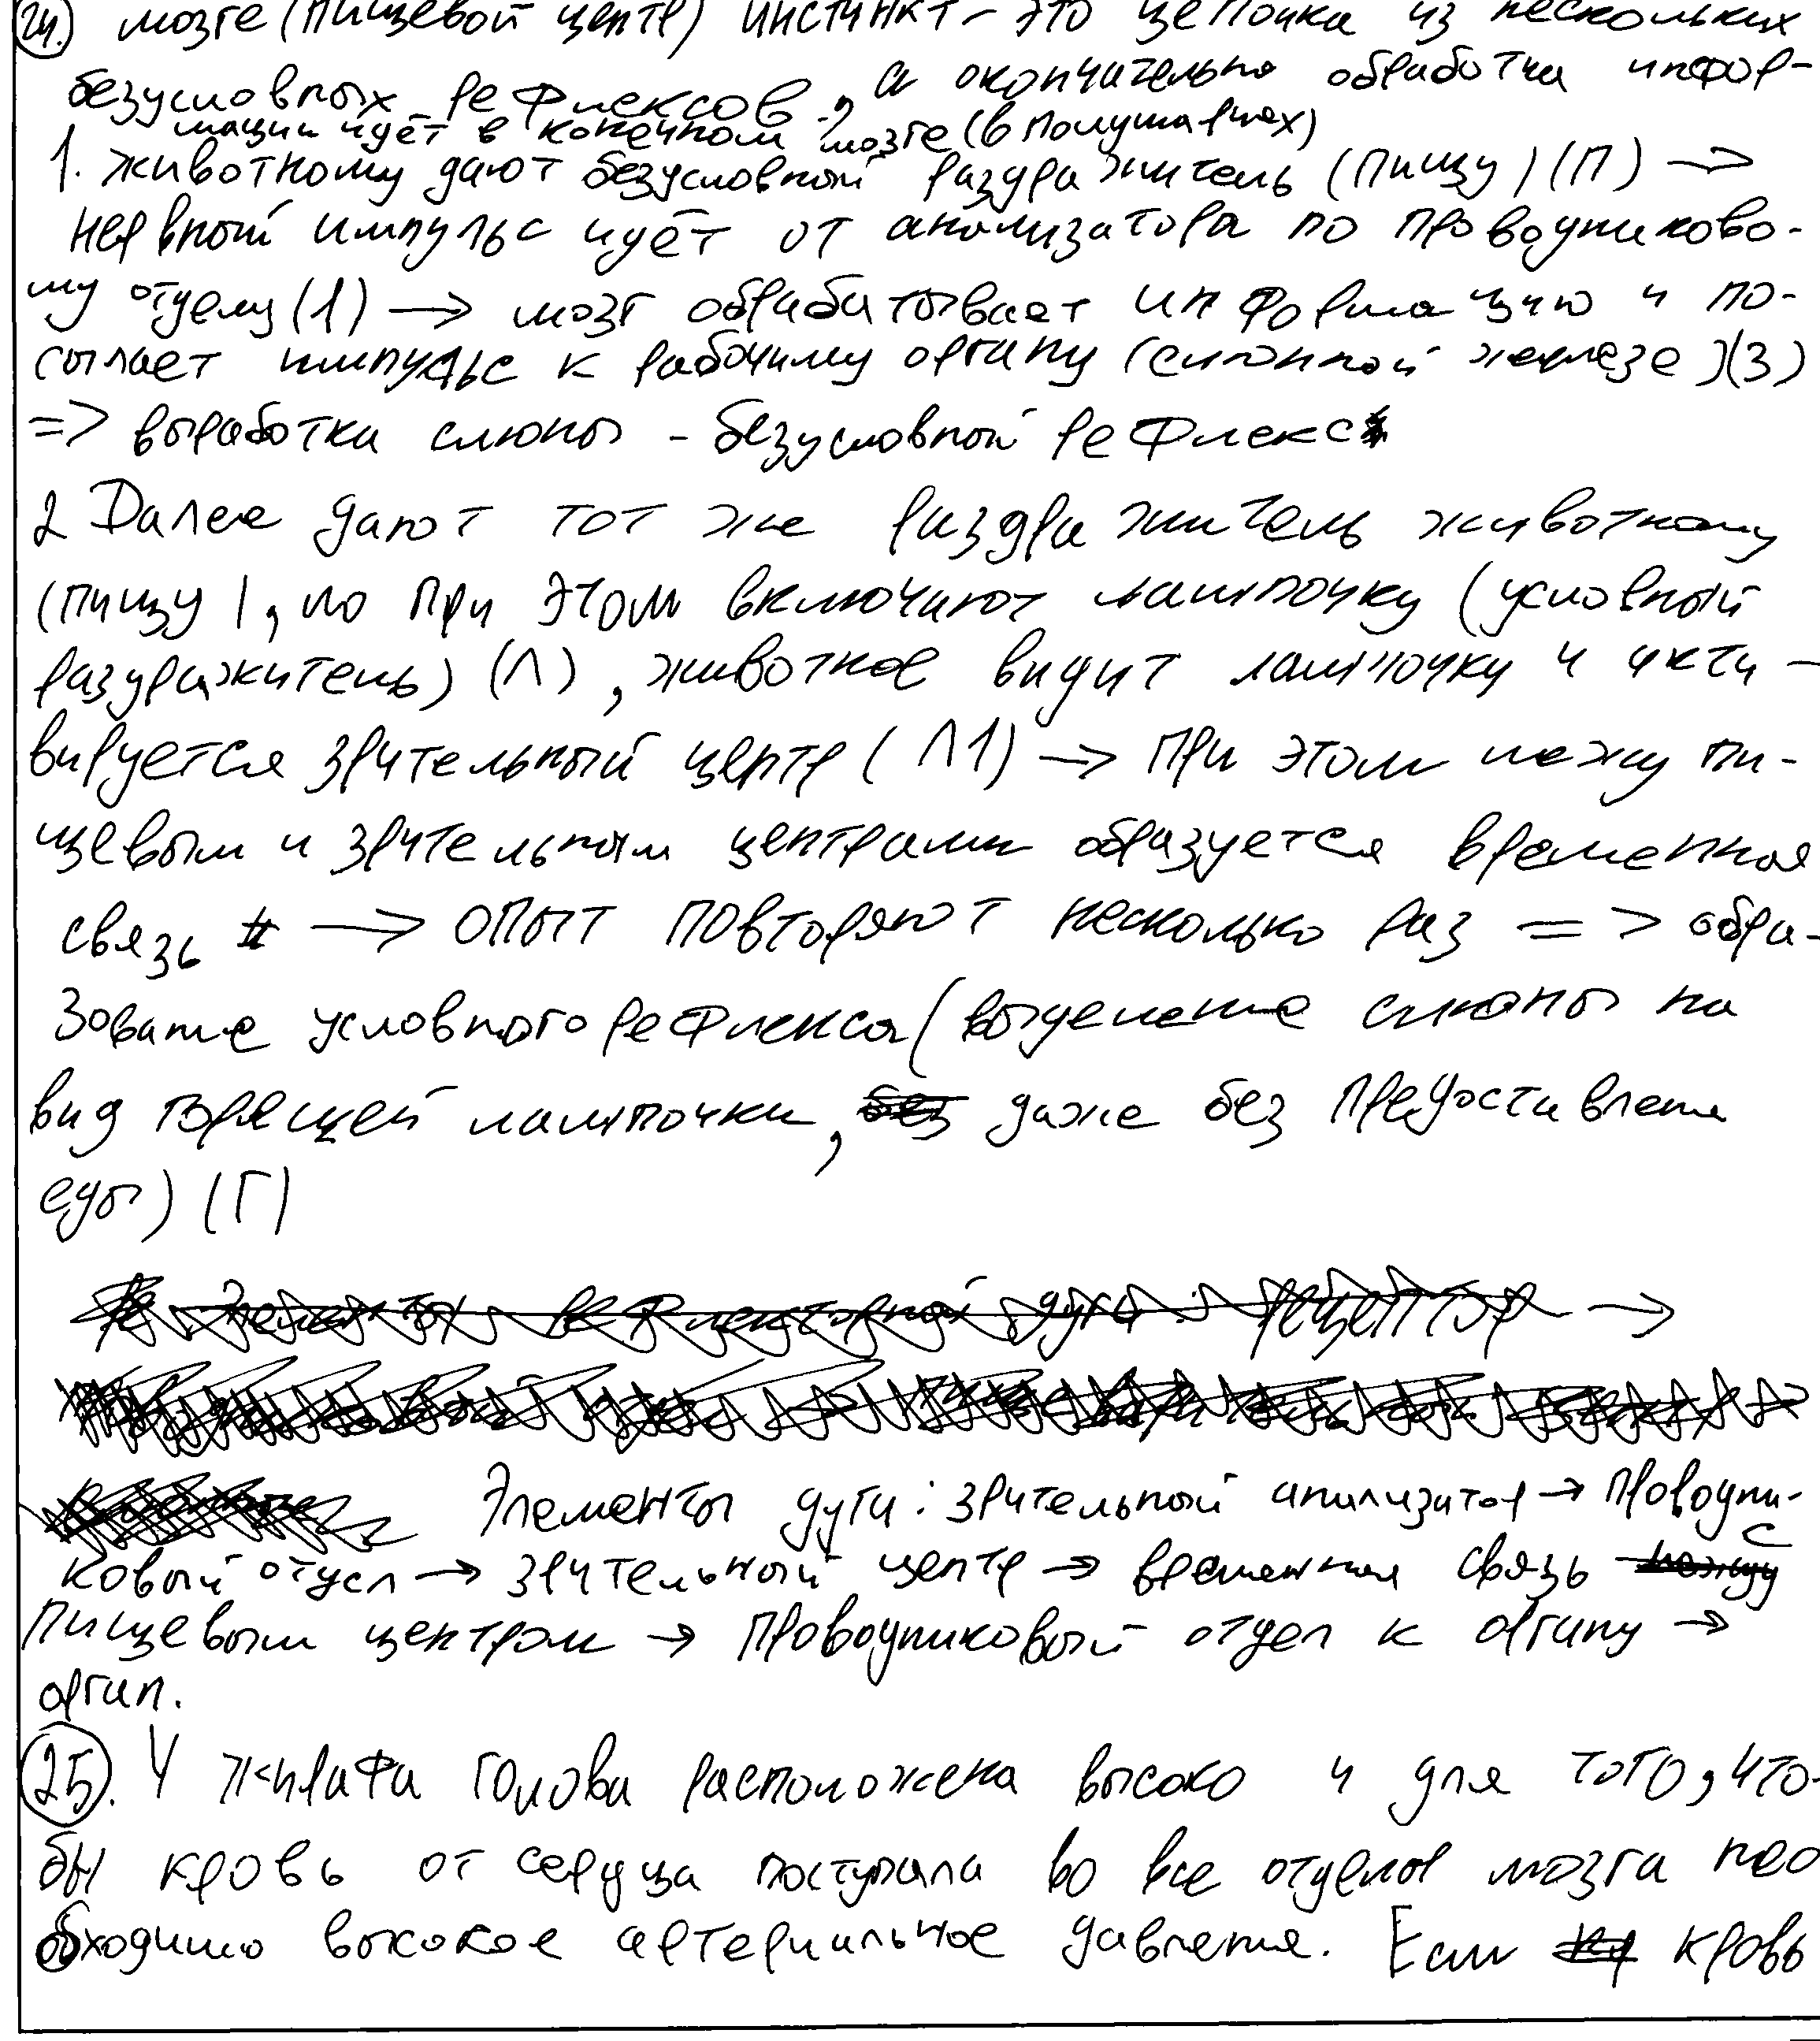 24. мозге (пищевой центр) инстинкт - это цепочка из нескольких
безусловных рефлексов, а окончательно обработка инфор-
мации идёт в конечном мозге (в полушариях)
1. животному дают безусловный раздражитель (пищу) (П) →
нервный импульс идёт от анализатора по проводниково-
му отделу (1) → мозг обрабатывает информацию и по-
сылает импульс к рабочиму органу (слюнной железе) (3)
=> выработка слюны - безусловный рефлекс
2 Далее дают тот же раздражитель животному
(пищу), но при этом включают лампочку (условный
раздражитель) (Л), животное видит лампочку и акти-
вируется зрительный центр (Л1) → при этом межу пи-
щевым и зрительным центрами образуется временная
связь → опыт повторяют несколько раз => обра-
зование условного рефлекса (выделение слюны на
вид горящей лампочки, без даже без предоставления
еды) (Г)
Элементы рефлекторной дуги: рецептор →
Элементы дуги: зрительный анализатор → проводни-
ковый отдел → зрительный центр → временная связь между с
пищевым центром → проводниковый отдел к органу →
орган.
25. У жирафа голова расположена высоко и для того, что-
бы кровь от сердца поступала во все отделы мозга нео
бходимо высокое артериальное давление. Если кр кровь